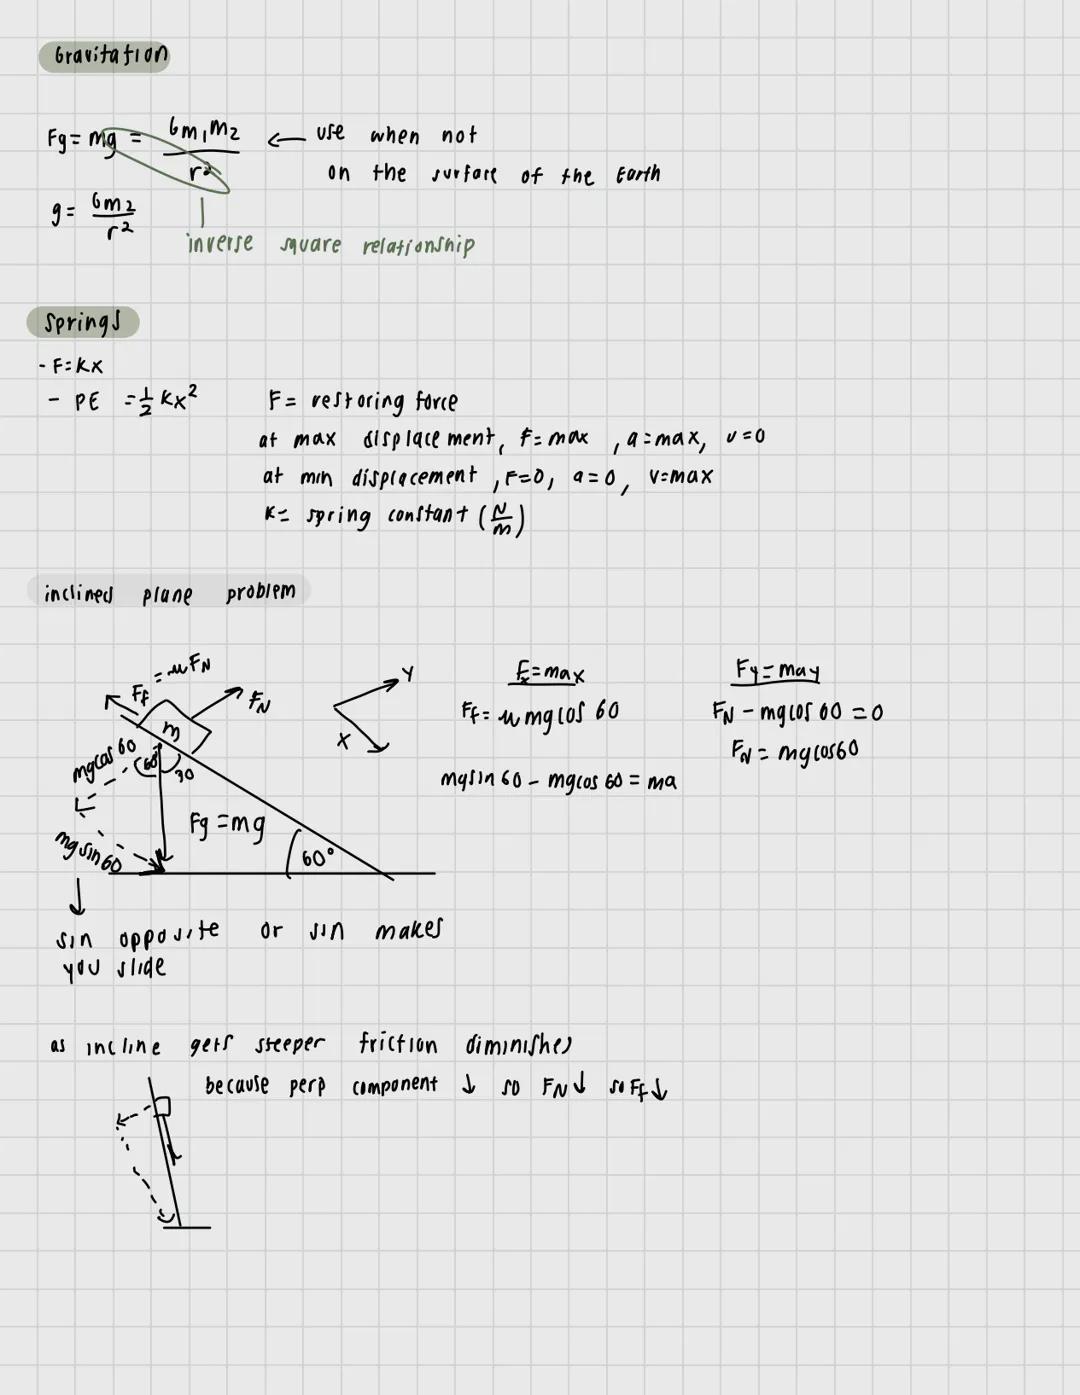 Gravitation
Fg = mg = Gm₁m₂ / r² ← use when not
on the surface of the Earth
g = Gm₂ / r²
inverse square relationship
Springs
- F = kx
- PE = ½ kx²
F = restoring force
at max displacement, F = max, a = max, v = 0
at min displacement, F = 0, a = 0, v = max
K = spring constant (N/m)
inclined plane problem
Ff = μFN
FN
m
mgcos 60
60°
30
Fg = mg
mg sin 60
60°
Y
X
Fx = max
Ff = μ mg cos 60
mgsin 60 - mgcos 60 = ma
Fy = may
FN - mgcos 60 = 0
FN = mgcos60
↓
sin opposite or sin makes
you slide
as incline gets steeper friction diminishes
because perp component ↓ so FN ↓ so Ff ↓